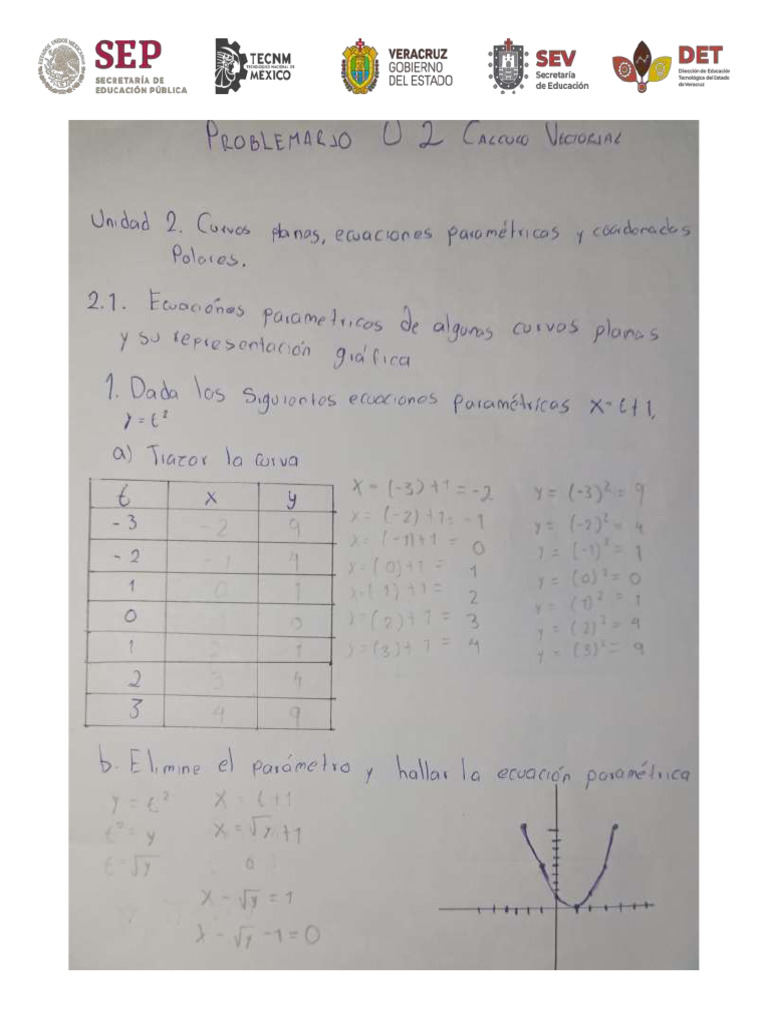 SEP
SECRETARÍA DE
EDUCACIÓN PÚBLICA
TECNM
TECNOLÓGICO NACIONAL DE
MÉXICO
VERACRUZ
GOBIERNO
DEL ESTADO
SEV
Secretaría
de Educación
DET
Dirección de Educación
Tecnológica del Estado
de Veracruz
PROBLEMARIO U 2 CALCULO VECTORIAL
Unidad 2. Curvas planas, ecuaciones paramétricas y coordenadas
Polares.
2.1. Ecuaciones parametricas de algunas curvas planas
y su representación gráfica
1. Dada las siguientes ecuaciones paramétricas x=t+1,
y=t²
a) Trazar la curva
t x y
-3 -2 9
-2 -1 4
1 0 1
0 1 0
1 2 1
2 3 4
3 4 9
x = (-3)+1 = -2 y = (-3)² = 9
x = (-2)+1 = -1 y = (-2)² = 4
x = (-1)+1 = 0 y = (-1)² = 1
x = (0)+1 = 1 y = (0)² = 0
x = (1)+1 = 2 y = (1)² = 1
x = (2)+1 = 3 y = (2)² = 4
x = (3)+1 = 4 y = (3)² = 9
b. Elimine el parámetro y hallar la ecuación paramétrica
y = t² x = t+1
t² = y x = √y +1
t = √y
x - √y = 1
x - √y - 1 = 0